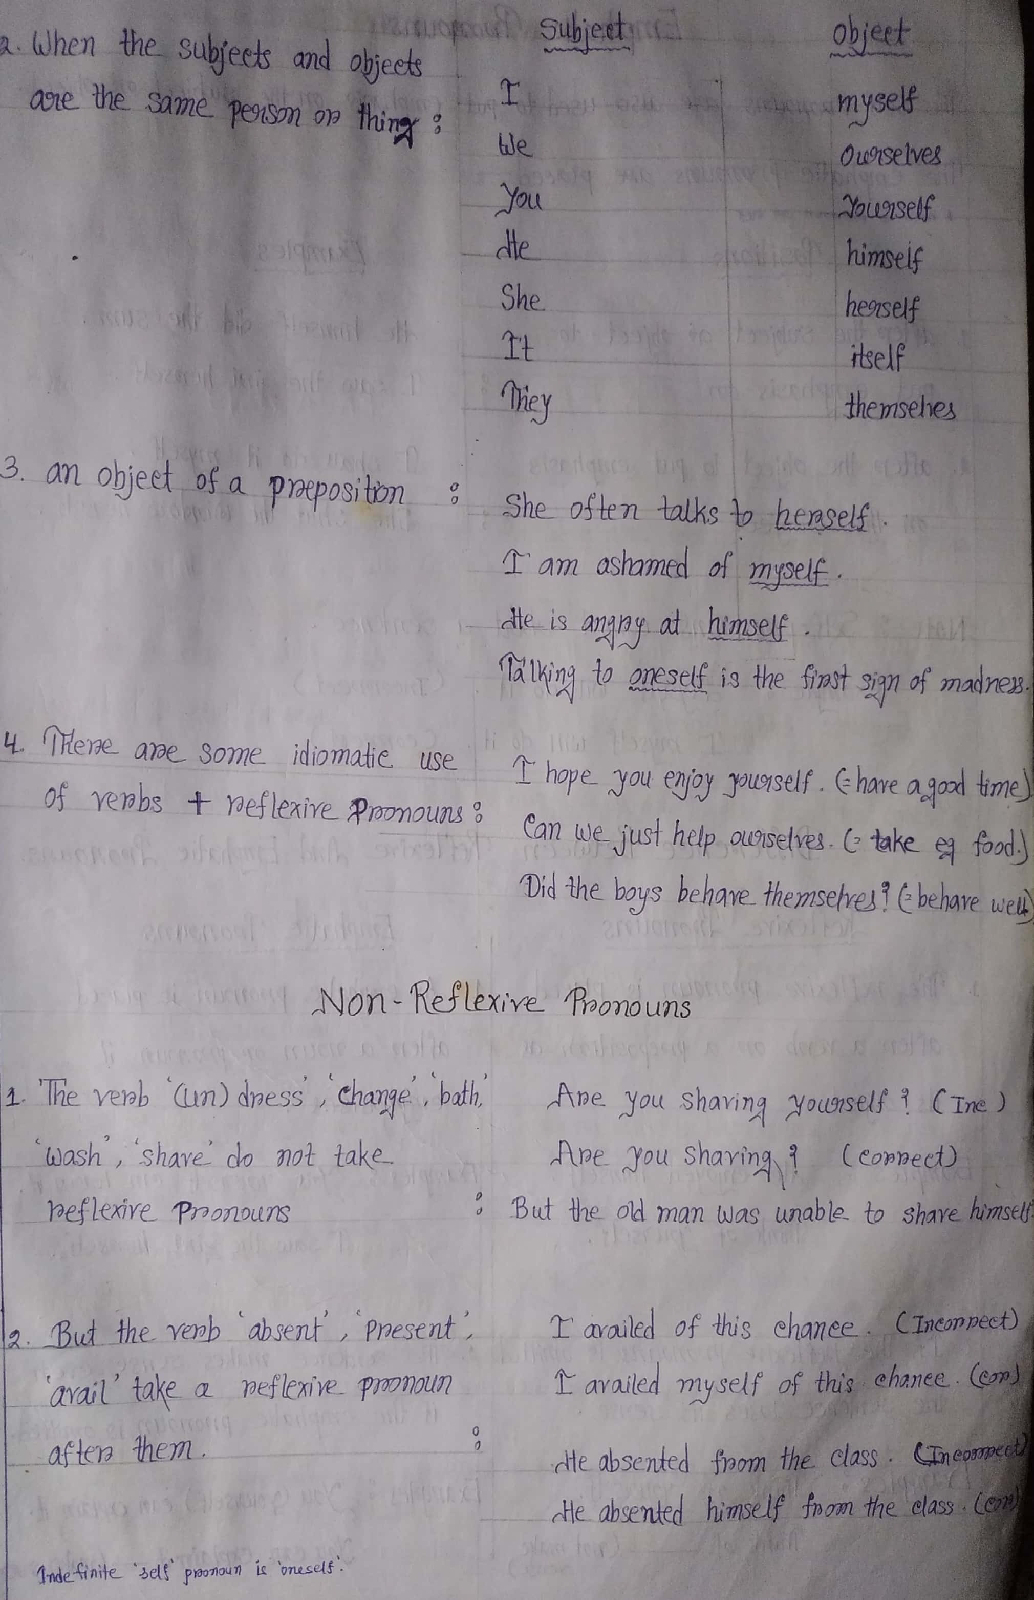 2. When the subjects and objects
are the same person or thing :
Subject Object
I myself
We Ourselves
You Yourself
He himself
She herself
It itself
They themselves
3. an object of a preposition :
She often talks to herself.
I am ashamed of myself.
He is angry at himself.
Talking to oneself is the first sign of madness.
4. There are some idiomatic use
of verbs + reflexive Pronouns :
I hope you enjoy yourself. (= have a good time)
Can we just help ourselves. (= take eg food.)
Did the boys behave themselves? (= behave well)
Non-Reflexive Pronouns
1. The verb '(un) dress', 'change', 'bath,'
'wash', 'shave' do not take
reflexive Pronouns :
Are you shaving yourself? (Inc)
Are you shaving? (correct)
But the old man was unable to shave himself
2. But the verb 'absent', 'Present',
'avail' take a reflexive pronoun
after them. :
I availed of this chance. (Incorrect)
I availed myself of this chance. (cor)
He absented from the class. (Incorrect)
He absented himself from the class. (cor)
Indefinite 'self' pronoun is 'oneself'.